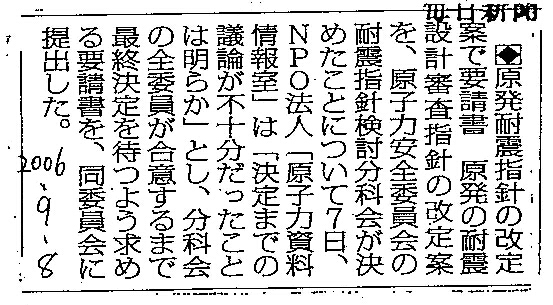 毎日新聞
◆原発耐震指針の改定
案で要請書　原発の耐震
設計審査指針の改定案
を、原子力安全委員会の
耐震指針検討分科会が決
めたことについて7日、
NPO法人「原子力資料
情報室」は「決定までの
議論が不十分だったこと
は明らか」とし、分科会
の全委員が合意するまで
最終決定を待つよう求め
る要請書を、同委員会に
提出した。
2006.9.8